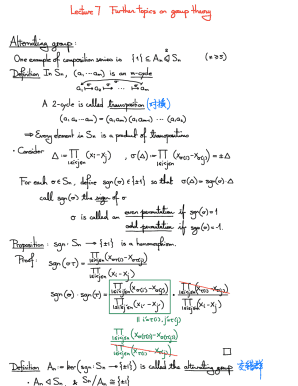 Lecture 7 Further topics on group theory
Alternating group:
One example of composition series is {1} ⊊ Aₙ ⊲ Sₙ (n ≥ 5)
Definition In Sₙ, (a₁ ⋯ aₘ) is an m-cycle
a₁ ↦ a₂ ↦ ⋯ ↦ aₘ
A 2-cycle is called transposition (对换)
(a₁ a₂ ⋯ aₘ) = (a₁ aₘ)(a₁ aₘ₋₁) ⋯ (a₁ a₂)
⇒ Every element in Sₙ is a product of transpositions
· Consider Δ := ∏_{1≤i<j≤n} (xᵢ − xⱼ) , σ(Δ) := ∏_{1≤i<j≤n} (x_{σ(i)} − x_{σ(j)}) = ±Δ
For each σ ∈ Sₙ, define sgn(σ) ∈ {±1} so that σ(Δ) = sgn(σ)·Δ
call sgn(σ) the sign of σ
σ is called an even permutation if sgn(σ) = 1
odd permutation if sgn(σ) = −1.
Proposition: sgn: Sₙ → {±1} is a homomorphism.
Proof: sgn(στ) = ∏_{1≤i<j≤n} (x_{στ(i)} − x_{στ(j)}) / ∏_{1≤i<j≤n} (xᵢ − xⱼ)
sgn(σ)·sgn(τ) = ∏_{1≤i'<j'≤n} (x_{σ(i')} − x_{σ(j')}) / ∏_{1≤i'<j'≤n} (x_{i'} − x_{j'}) · ∏_{1≤i<j≤n} (x_{τ(i)} − x_{τ(j)}) / ∏_{1≤i<j≤n} (xᵢ − xⱼ)
|| i'=τ(i), j'=τ(j)
∏_{1≤i<j≤n} (x_{στ(i)} − x_{στ(j)}) / ∏_{1≤i<j≤n} (x_{τ(i)} − x_{τ(j)}) □
Definition Aₙ := ker(sgn: Sₙ → {±1}) is called the alternating group 交错群
· Aₙ ⊲ Sₙ, & Sₙ/Aₙ ≅ {±1}